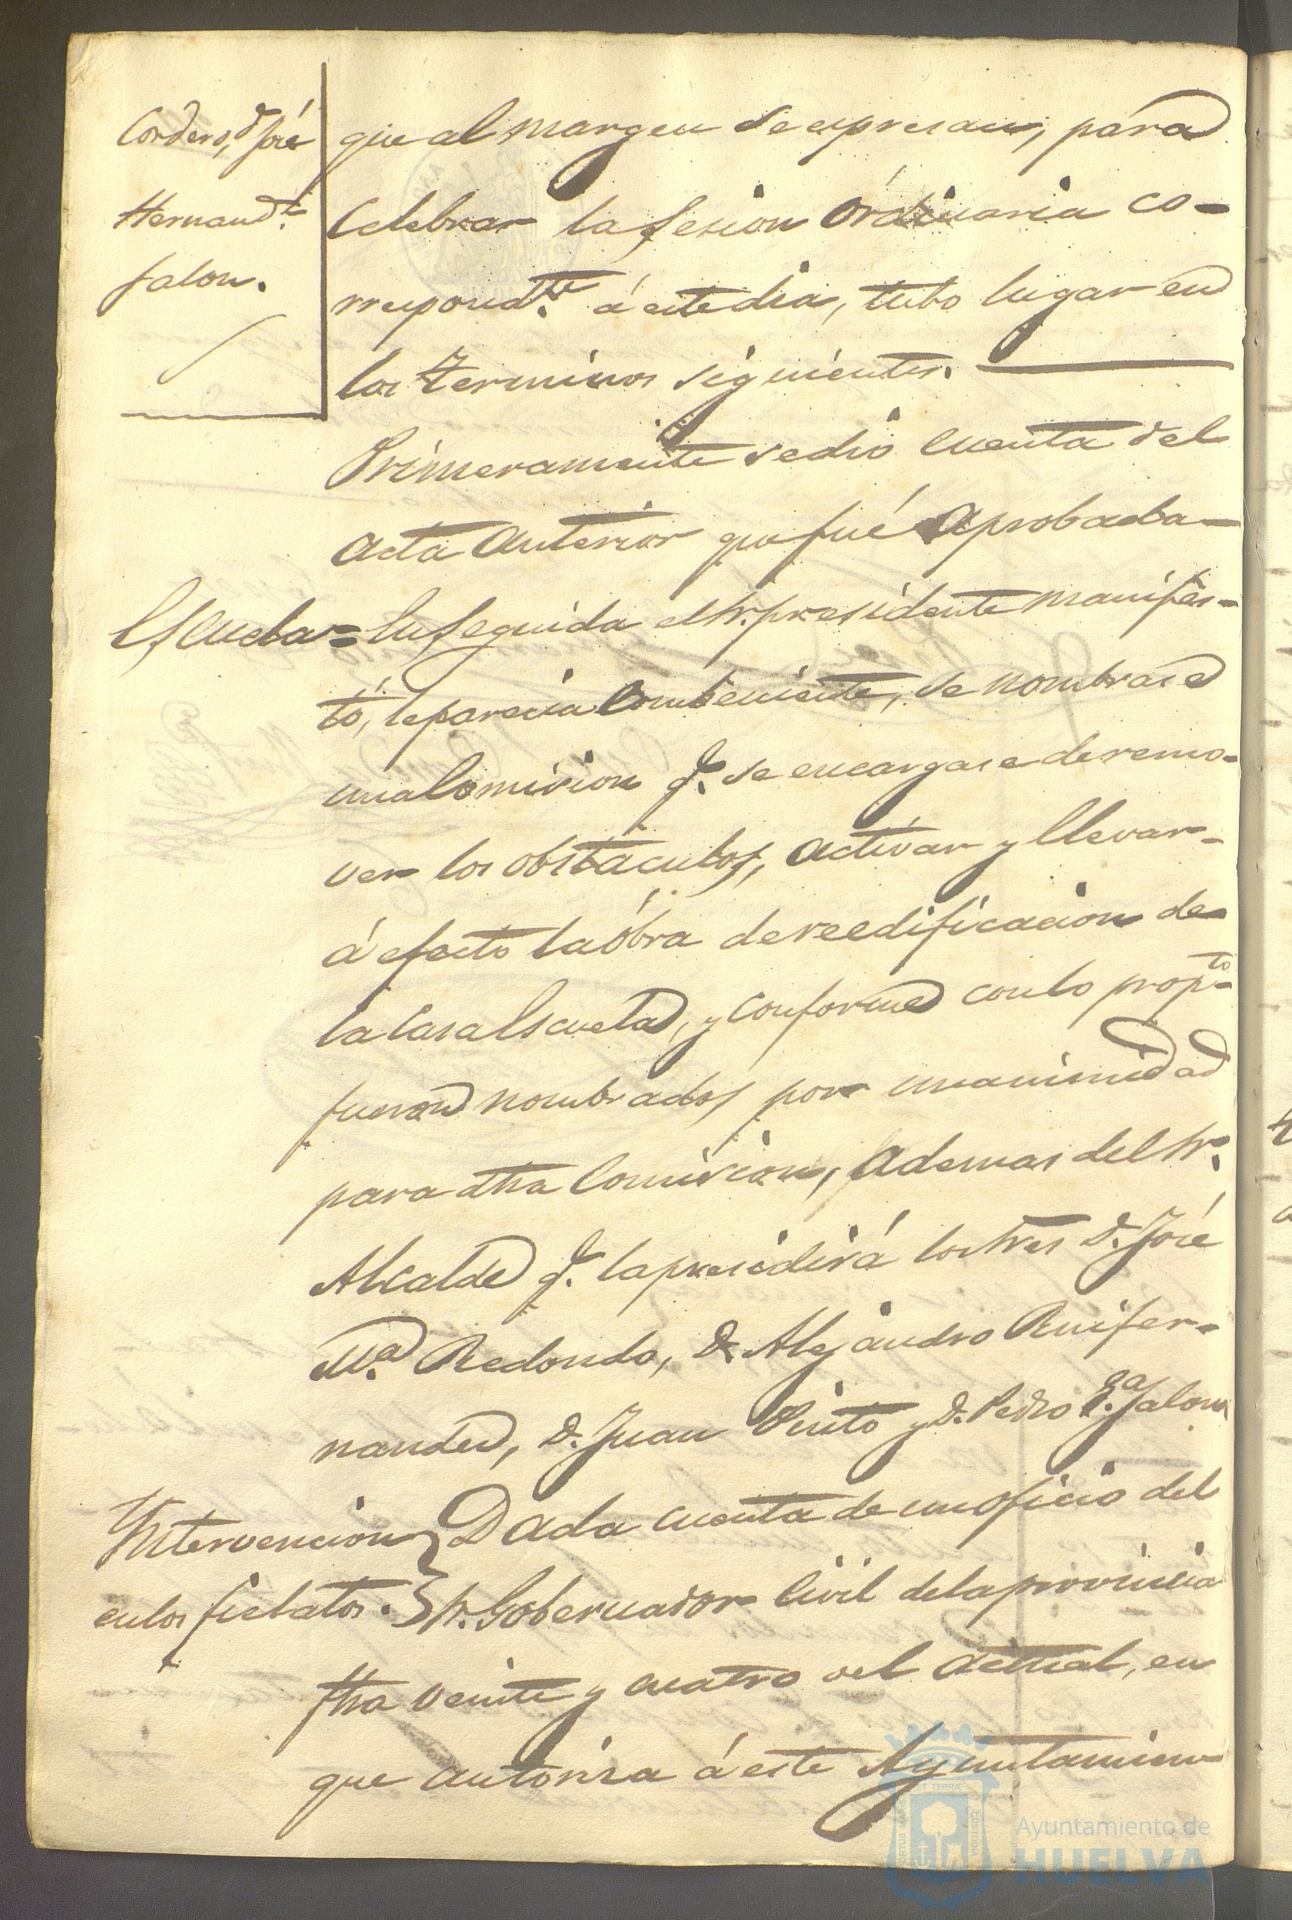 Cordero, dⁿ José
Hernandᶻ
Jalon.
que al margen se espresan, para
Celebrar la Sesion Ordinaria co-
rrespondᵗᵉ. á este dia, tubo lugar en
los terminos siguientes.
Primeramente se dio cuenta del
acta anterior que fué aprobada-
Escuela = En Seguida el Sr. presidente manifes-
tó, le parecia combeniente, se nombrase
una Comision q. se encargase de remo-
ver los obstaculos, activar y llevar-
á efecto la óbra de reedificacion de
la Casa Escuela, y conforme con lo propᵗᵒ
fueron nombrados por unanimidad
para dha Comision, Ademas del Sr.
Alcalde q. la presidirá los Sres D. José
Mª. Redondo, D. Alejandro Ruifer-
nandez, D. Juan Pinto y D. Pedro Gª. Jalon
Intervencion Dada cuenta de un oficio del
en los fielatos. Sr. Gobernador Civil de la provincia
fha veinte y cuatro del actual, en
que autoriza á este Ayuntamien
Ayuntamiento de
HUELVA